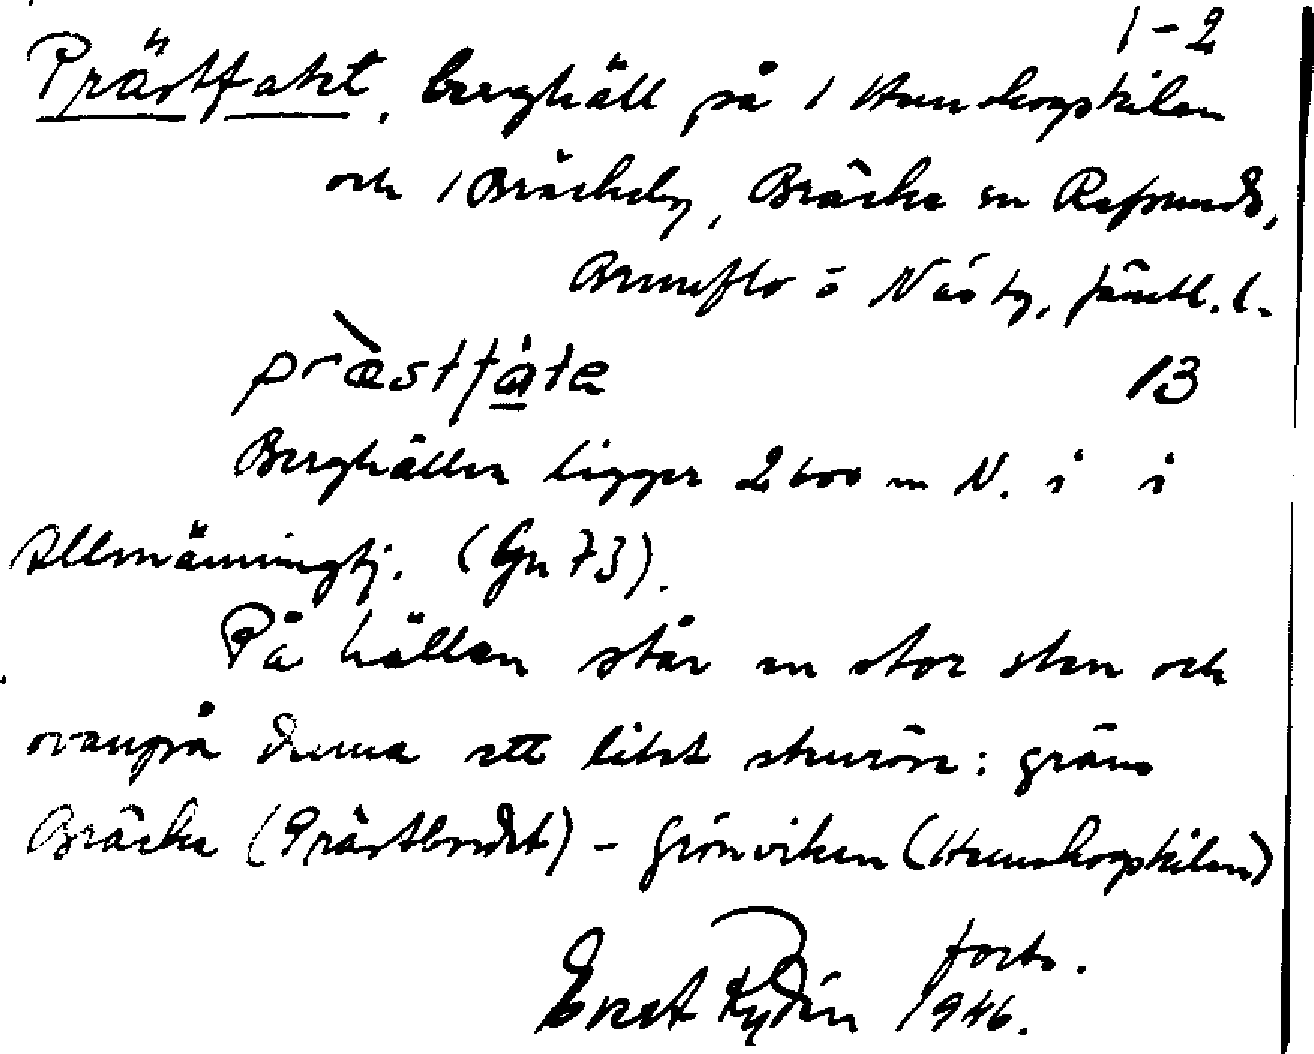 1-2
Prästfatet, berghäll på 1 Hunskogskilen
och 1 Bräckeby, Bräcke sn Refsunds,
Brunflo o Näs tg, Jämtl. l.
præstfàte 13
Berghällen ligger 2600 m N. i i
Allmänningtj. (Gn 73).
På hällen står en stor sten och
ovanpå denna ett litet stenröse: gräns
Bräcke (Prästbordet) - Grönviken (Hunskogskilen)
forts.
Evert Rydén 1946.